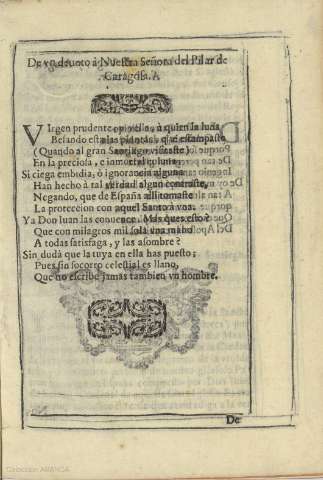 De vn deuoto à Nuestra Señora del Pilar de
Caragoça.
VIrgen prudente, a quien la luna
Besando està las plantas, que estampaste
(Quando al gran Santiago visitaste)
En la preciosa, e inmortal coluna;
Si ciega embidia, ò ignorancia alguna
Han hecho à tal verdad algun contraste,
Negando, que de España alli tomaste
La proteccion con aquel Santo à vna.
Ya Don Iuan las conuence. Mas que es esto?
Que con milagros mil sola vna mano
A todas satisfaga, y las asombre?
Sin dudà que la tuya en ella has puesto;
Pues sin socorro celestial es llano,
Que no escribe jamas tambien vn hombre.
De
Colección ARANCA